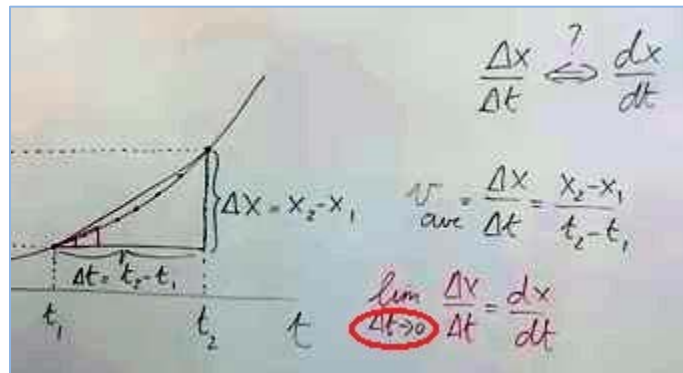 Δx/Δt ⇔ dx/dt
?
Δx = x₂-x₁
v ave = Δx/Δt = x₂-x₁/t₂-t₁
Δt = t₂-t₁
lim Δt→0 Δx/Δt = dx/dt
t₁ t₂ t